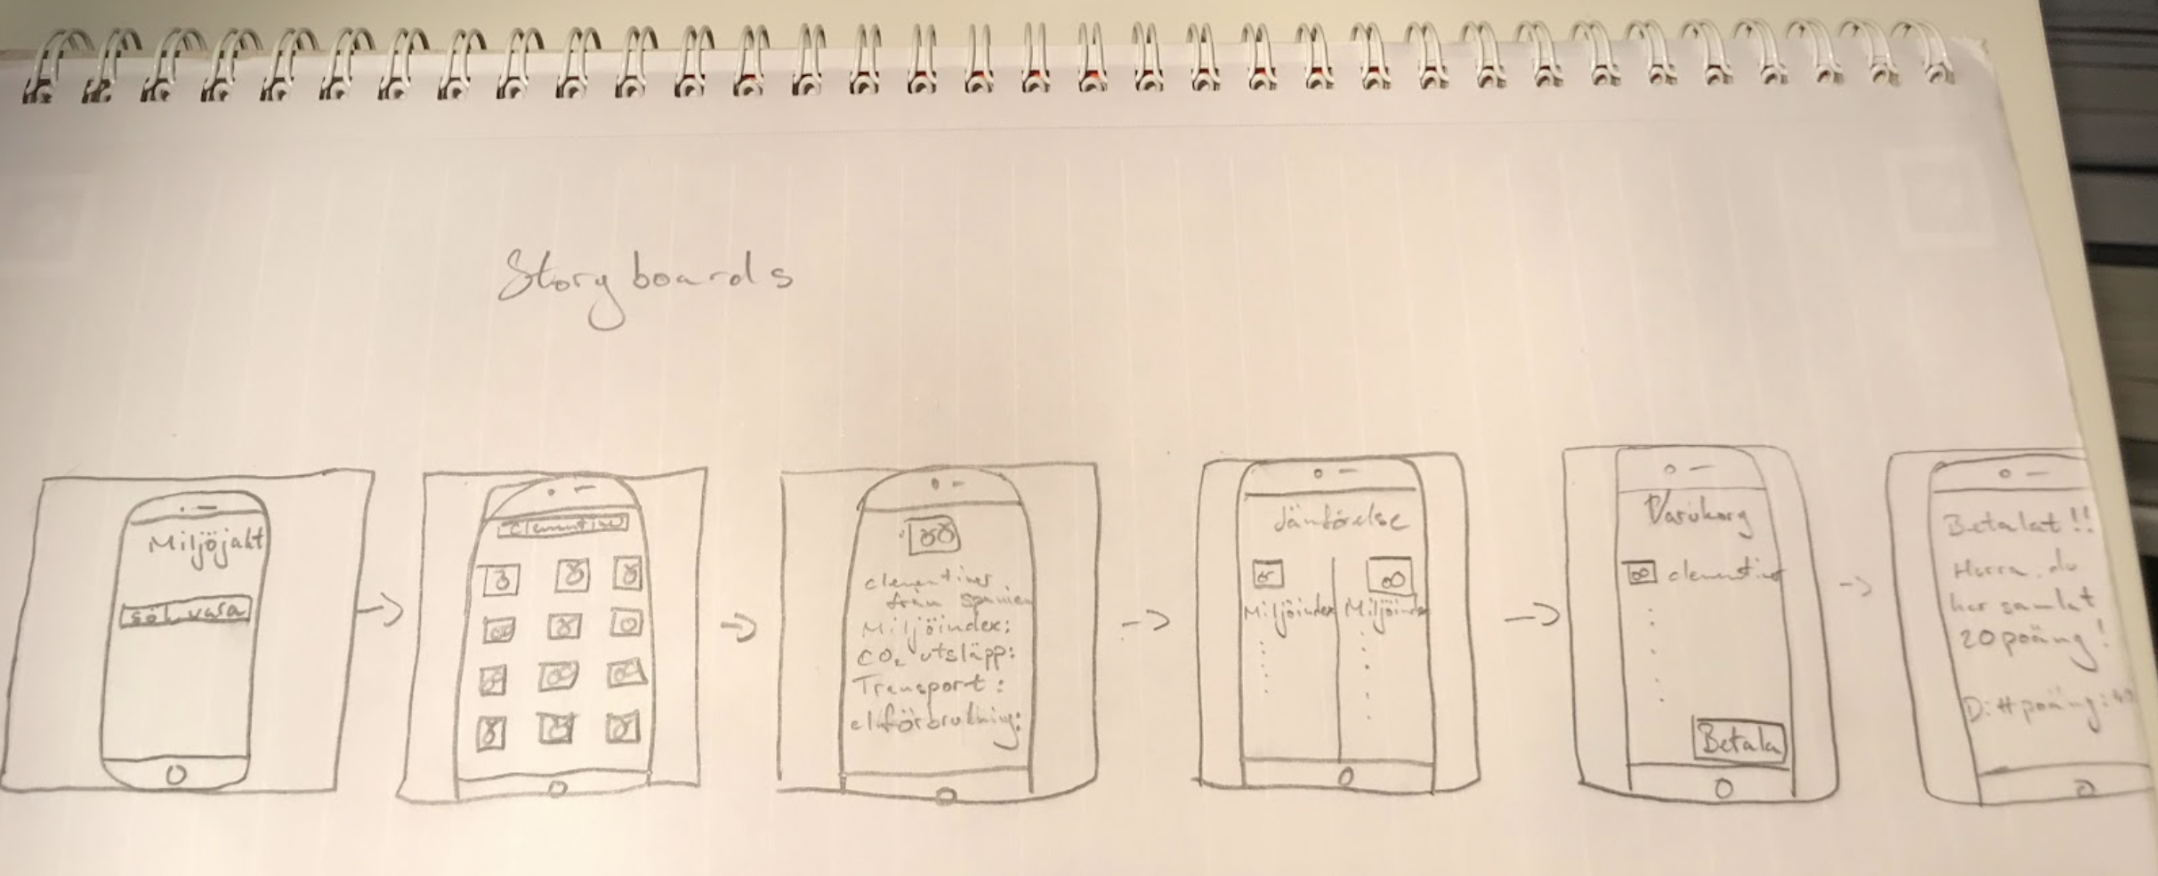 Storyboards
Miljöjakt
sök vara
clementiner
clementiner
från spanien
Miljöindex:
CO₂ utsläpp:
Transport:
elförbrukning:
Jämförelse
Miljöindex Miljöindex
Varukorg
clementiner
Betala
Betalat!!
Hurra, du
har samlat
20 poäng!
Ditt poäng: